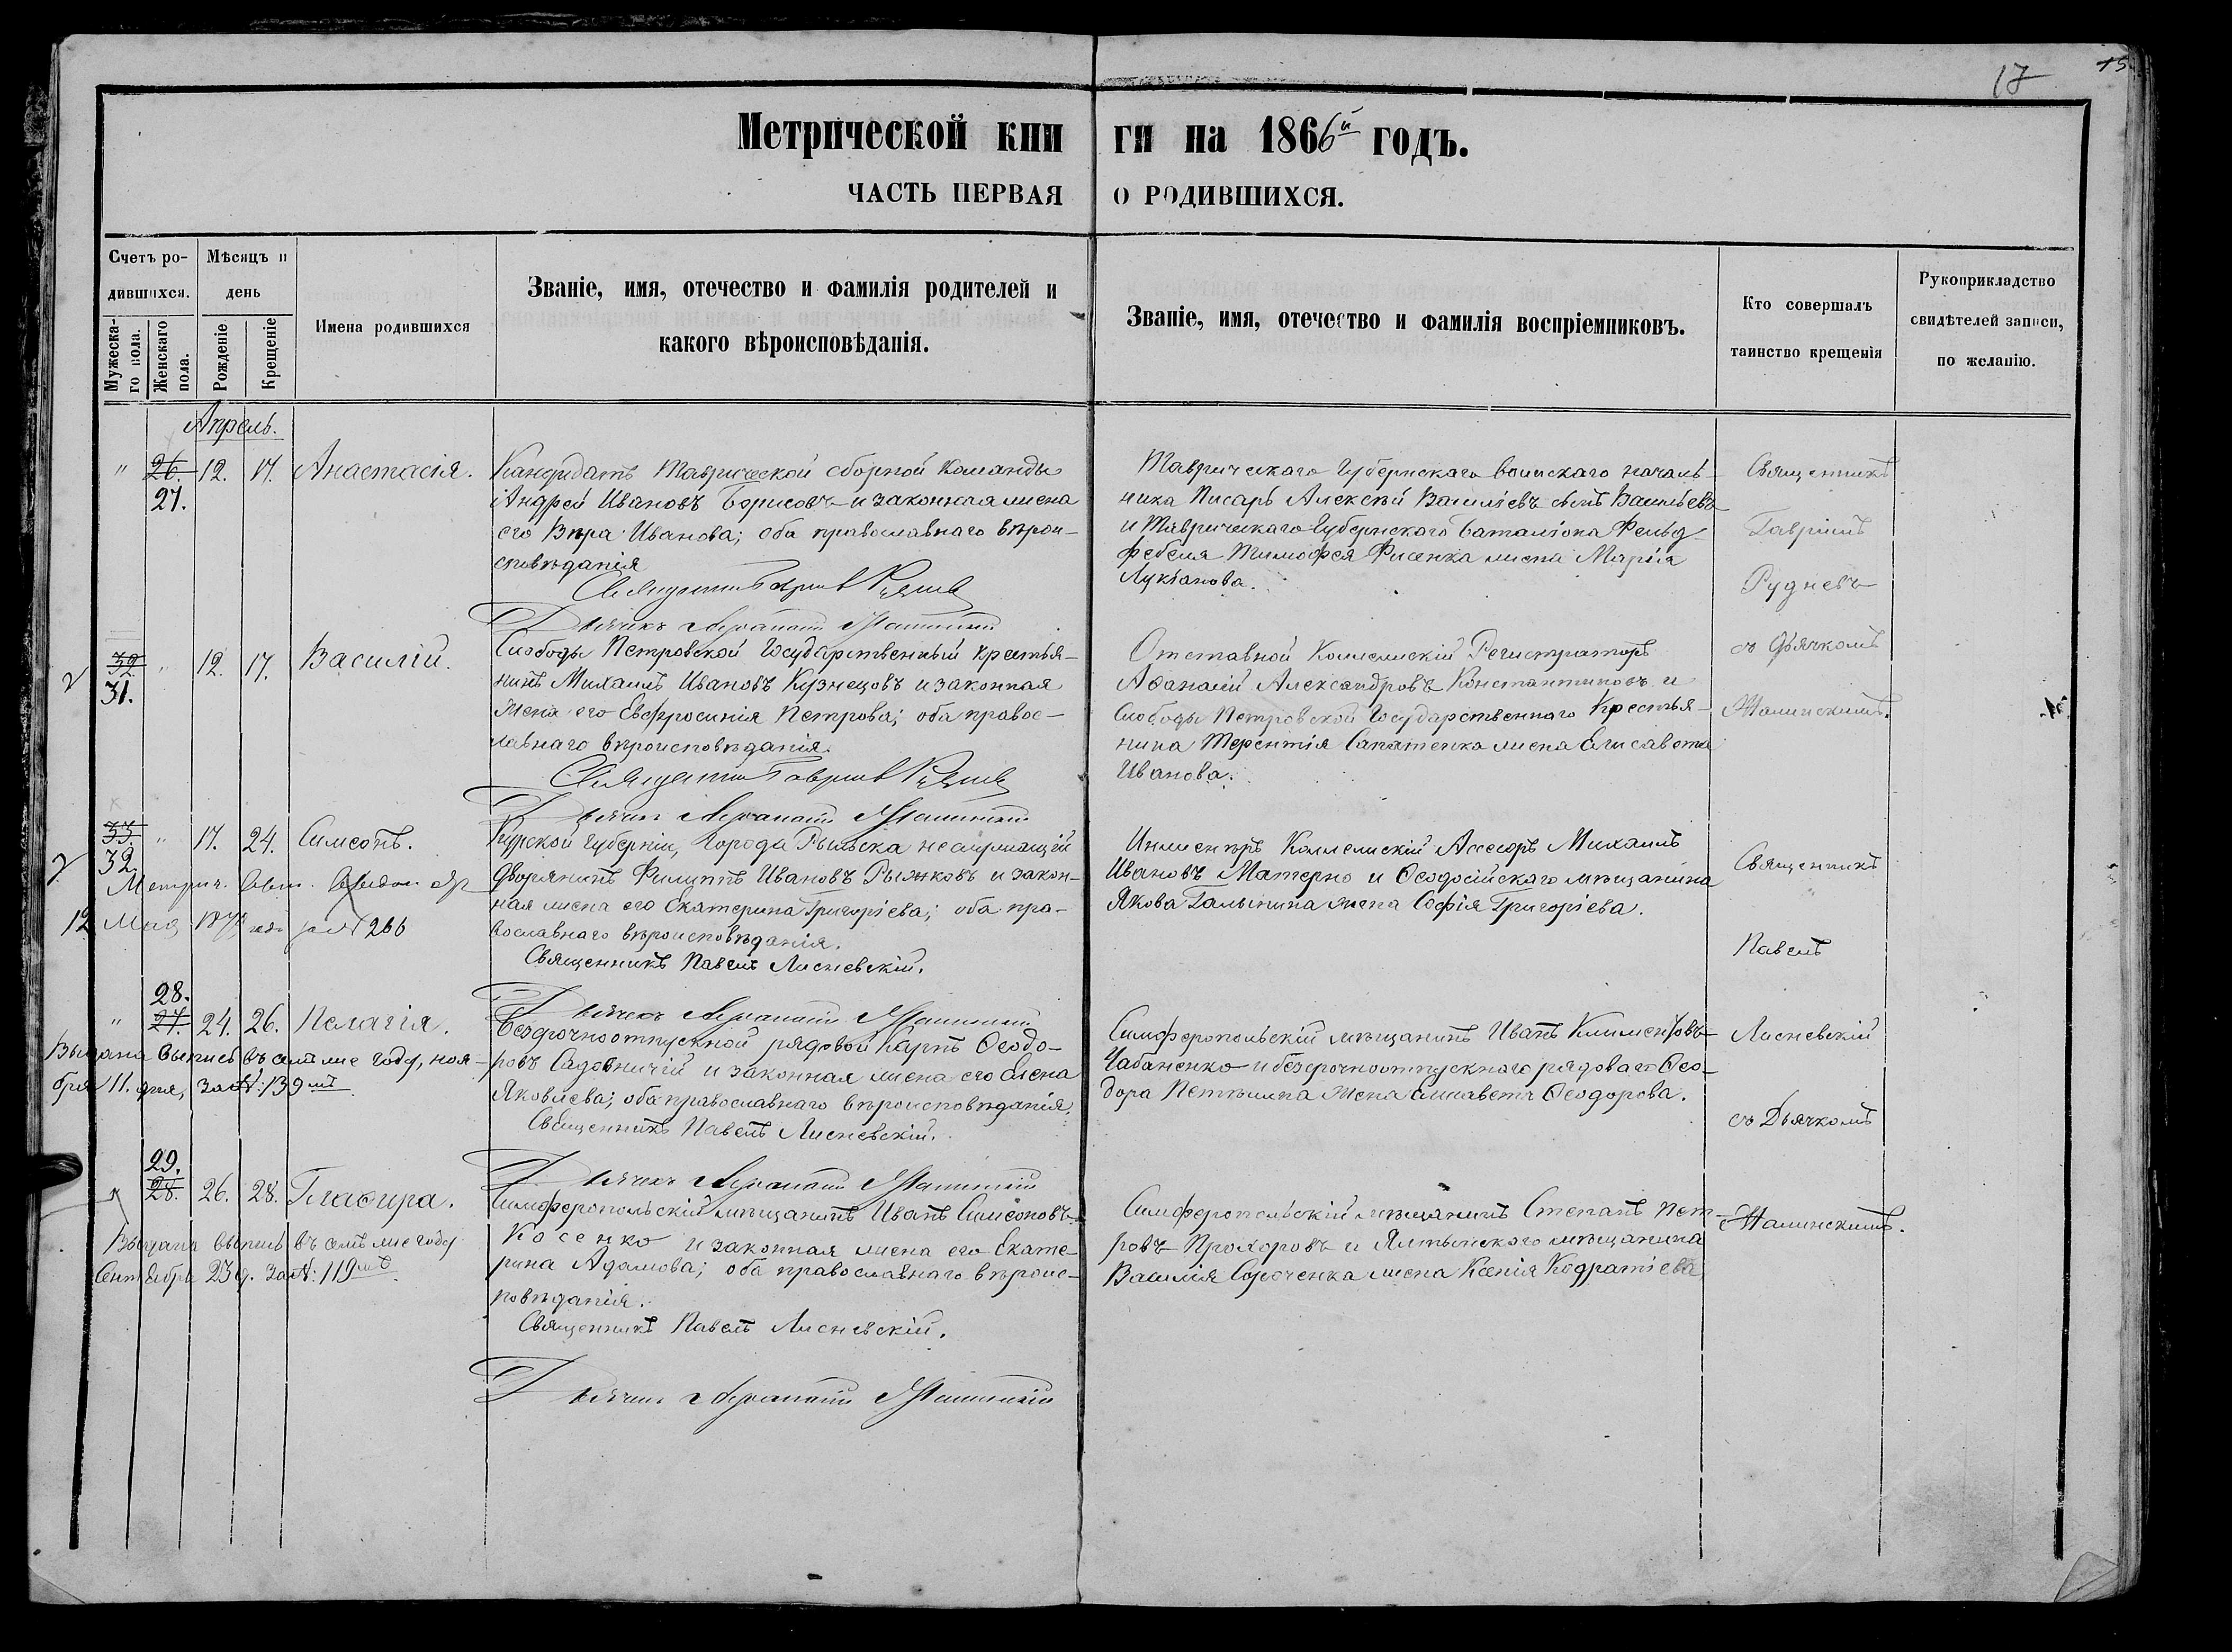 17
15
Метрической кни ги на 1866й годъ.
ЧАСТЬ ПЕРВАЯ О РОДИВШИХСЯ.
Счетъ ро-
дившихся.
Мужеска-
го пола.
Женскаго
пола.
Мѣсяцъ и
день
Рожденіе
Крещеніе
Имена родившихся
Званіе, имя, отечество и фамилія родителей и
какого вѣроисповѣданія.
Званіе, имя, отечество и фамилія воспріемниковъ.
Кто совершалъ
таинство крещенія
Рукоприкладство
свидѣтелей записи,
по желанію.
Апрель.
" 26. 12. 17. Анастасія.
27.
Кандидатъ Таврической сборной команды
Андрей Ивановъ Борисовъ и законная жена
его Вѣра Иванова; оба православнаго вѣрои-
сповѣданія
Таврическаго Губернскаго воинскаго началь-
ника Писарь Алексѣй Василіевъ Васильевъ
и Таврическаго Губернскаго баталіона Фельд-
фебеля Тимофея Фисенка жена Марія
Лукіанова.
Священникъ
Гавріилъ
Рудневъ
съ Дьячкомъ
32. " 12. 17. Василій.
31.
Слободы Петровской Государственный крестья-
нинъ Михаилъ Ивановъ Кузнецовъ и законная
жена его Евфросинія Петрова; оба правос-
лавнаго вѣроисповѣданія.
Отставной Коллежскій Регистраторъ
Аѳанасій Александровъ Константиновъ и
Слободы Петровской Государственнаго Крестья-
нина Терентія жена Елисавета
Иванова.
33. " 17. 24. Симеонъ.
32.
12 Мая 266
Курской Губерніи, города Рыльска неслужащій
дворянинъ Филиппъ Ивановъ Рыжковъ и закон-
ная жена его Екатерина Григоріева; оба пра-
вославнаго вѣроисповѣданія.
Священникъ Павелъ Лисневскій.
Инженеръ Коллежскій Ассесоръ Михаилъ
Ивановъ Матерно и Ѳеодосійскаго мѣщанина
Якова Галынина жена Софія Григоріева.
Священникъ
Павелъ
Лисневскій
съ Дьячкомъ
28.
" 27. 24. 26. Пелагія.
Выдана выпись въ семъ же году, ноя-
бря 11. дня, за №: 139мъ
Безсрочноотпускной рядовой Карпъ Ѳеодо-
ровъ Садовничій и законная жена его Елена
Яковлева; оба православнаго вѣроисповѣданія.
Священникъ Павелъ Лисневскій.
Симферопольскій мѣщанинъ Иванъ Климентовъ
Чабаненко и безсрочноотпускнаго рядоваго Ѳео-
дора жена Елисавета Ѳеодорова.
29.
28. 26. 28. Глафира.
Выдана выпись въ семъ же году
Сентября 23 д. за №: 119мъ
Симферопольскій мѣщанинъ Иванъ Симеоновъ
Косенко и законная жена его Екате-
рина Адамова; оба православнаго вѣроис-
повѣданія.
Священникъ Павелъ Лисневскій.
Симферопольскій мѣщанинъ Степанъ Пет-
ровъ Прохоровъ и Ялтинскаго мѣщанина
Василія жена Ксенія Кодратіева